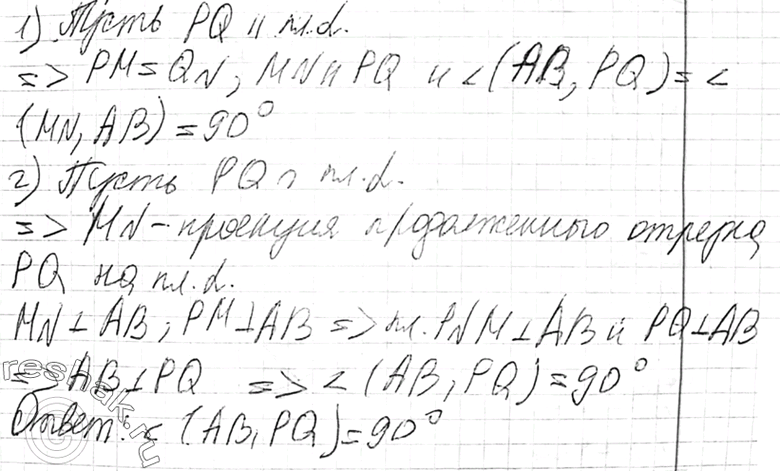 1) Пусть PQ || пл.α.
=> PM=QN, MN || PQ и ∠(AB, PQ)=∠
(MN, AB)=90°
2) Пусть PQ ∩ пл.α.
=> MN - проекция продолженного отрезка
PQ на пл.α.
MN ⊥ AB, PM ⊥ AB => пл. PNM ⊥ AB и PQ ⊥ AB
=> AB ⊥ PQ => ∠(AB, PQ)=90°
Ответ: ∠(AB, PQ)=90°
reshak.ru